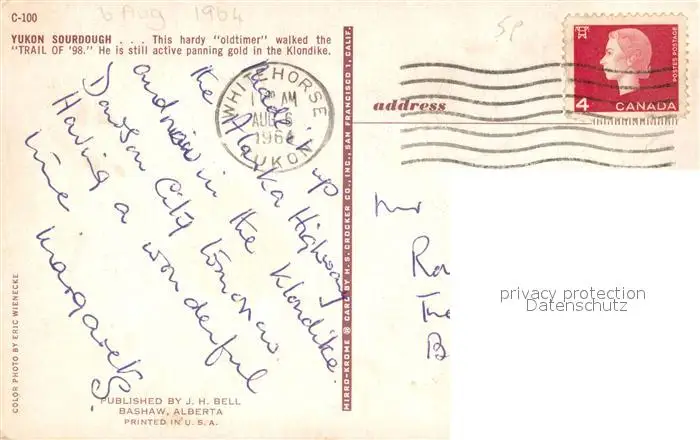 6 Aug 1964
C-100
YUKON SOURDOUGH . . . This hardy "oldtimer" walked the
"TRAIL OF '98." He is still active panning gold in the Klondike.
Made it up
the Alaska Highway
and now in the Klondike.
Dawson City tomorrow.
Having a wonderful
time Margaret S.
WHITEHORSE
AM
AUG 6
1964
YUKON
5P
POSTES POSTAGE
4 CANADA
address
Mr
privacy protection
Datenschutz
COLOR PHOTO BY ERIC WIENECKE
MIRRO-KROME ® CARD BY H. S. CROCKER CO., INC., SAN FRANCISCO 1, CALIF.
PUBLISHED BY J. H. BELL
BASHAW, ALBERTA
PRINTED IN U. S. A.